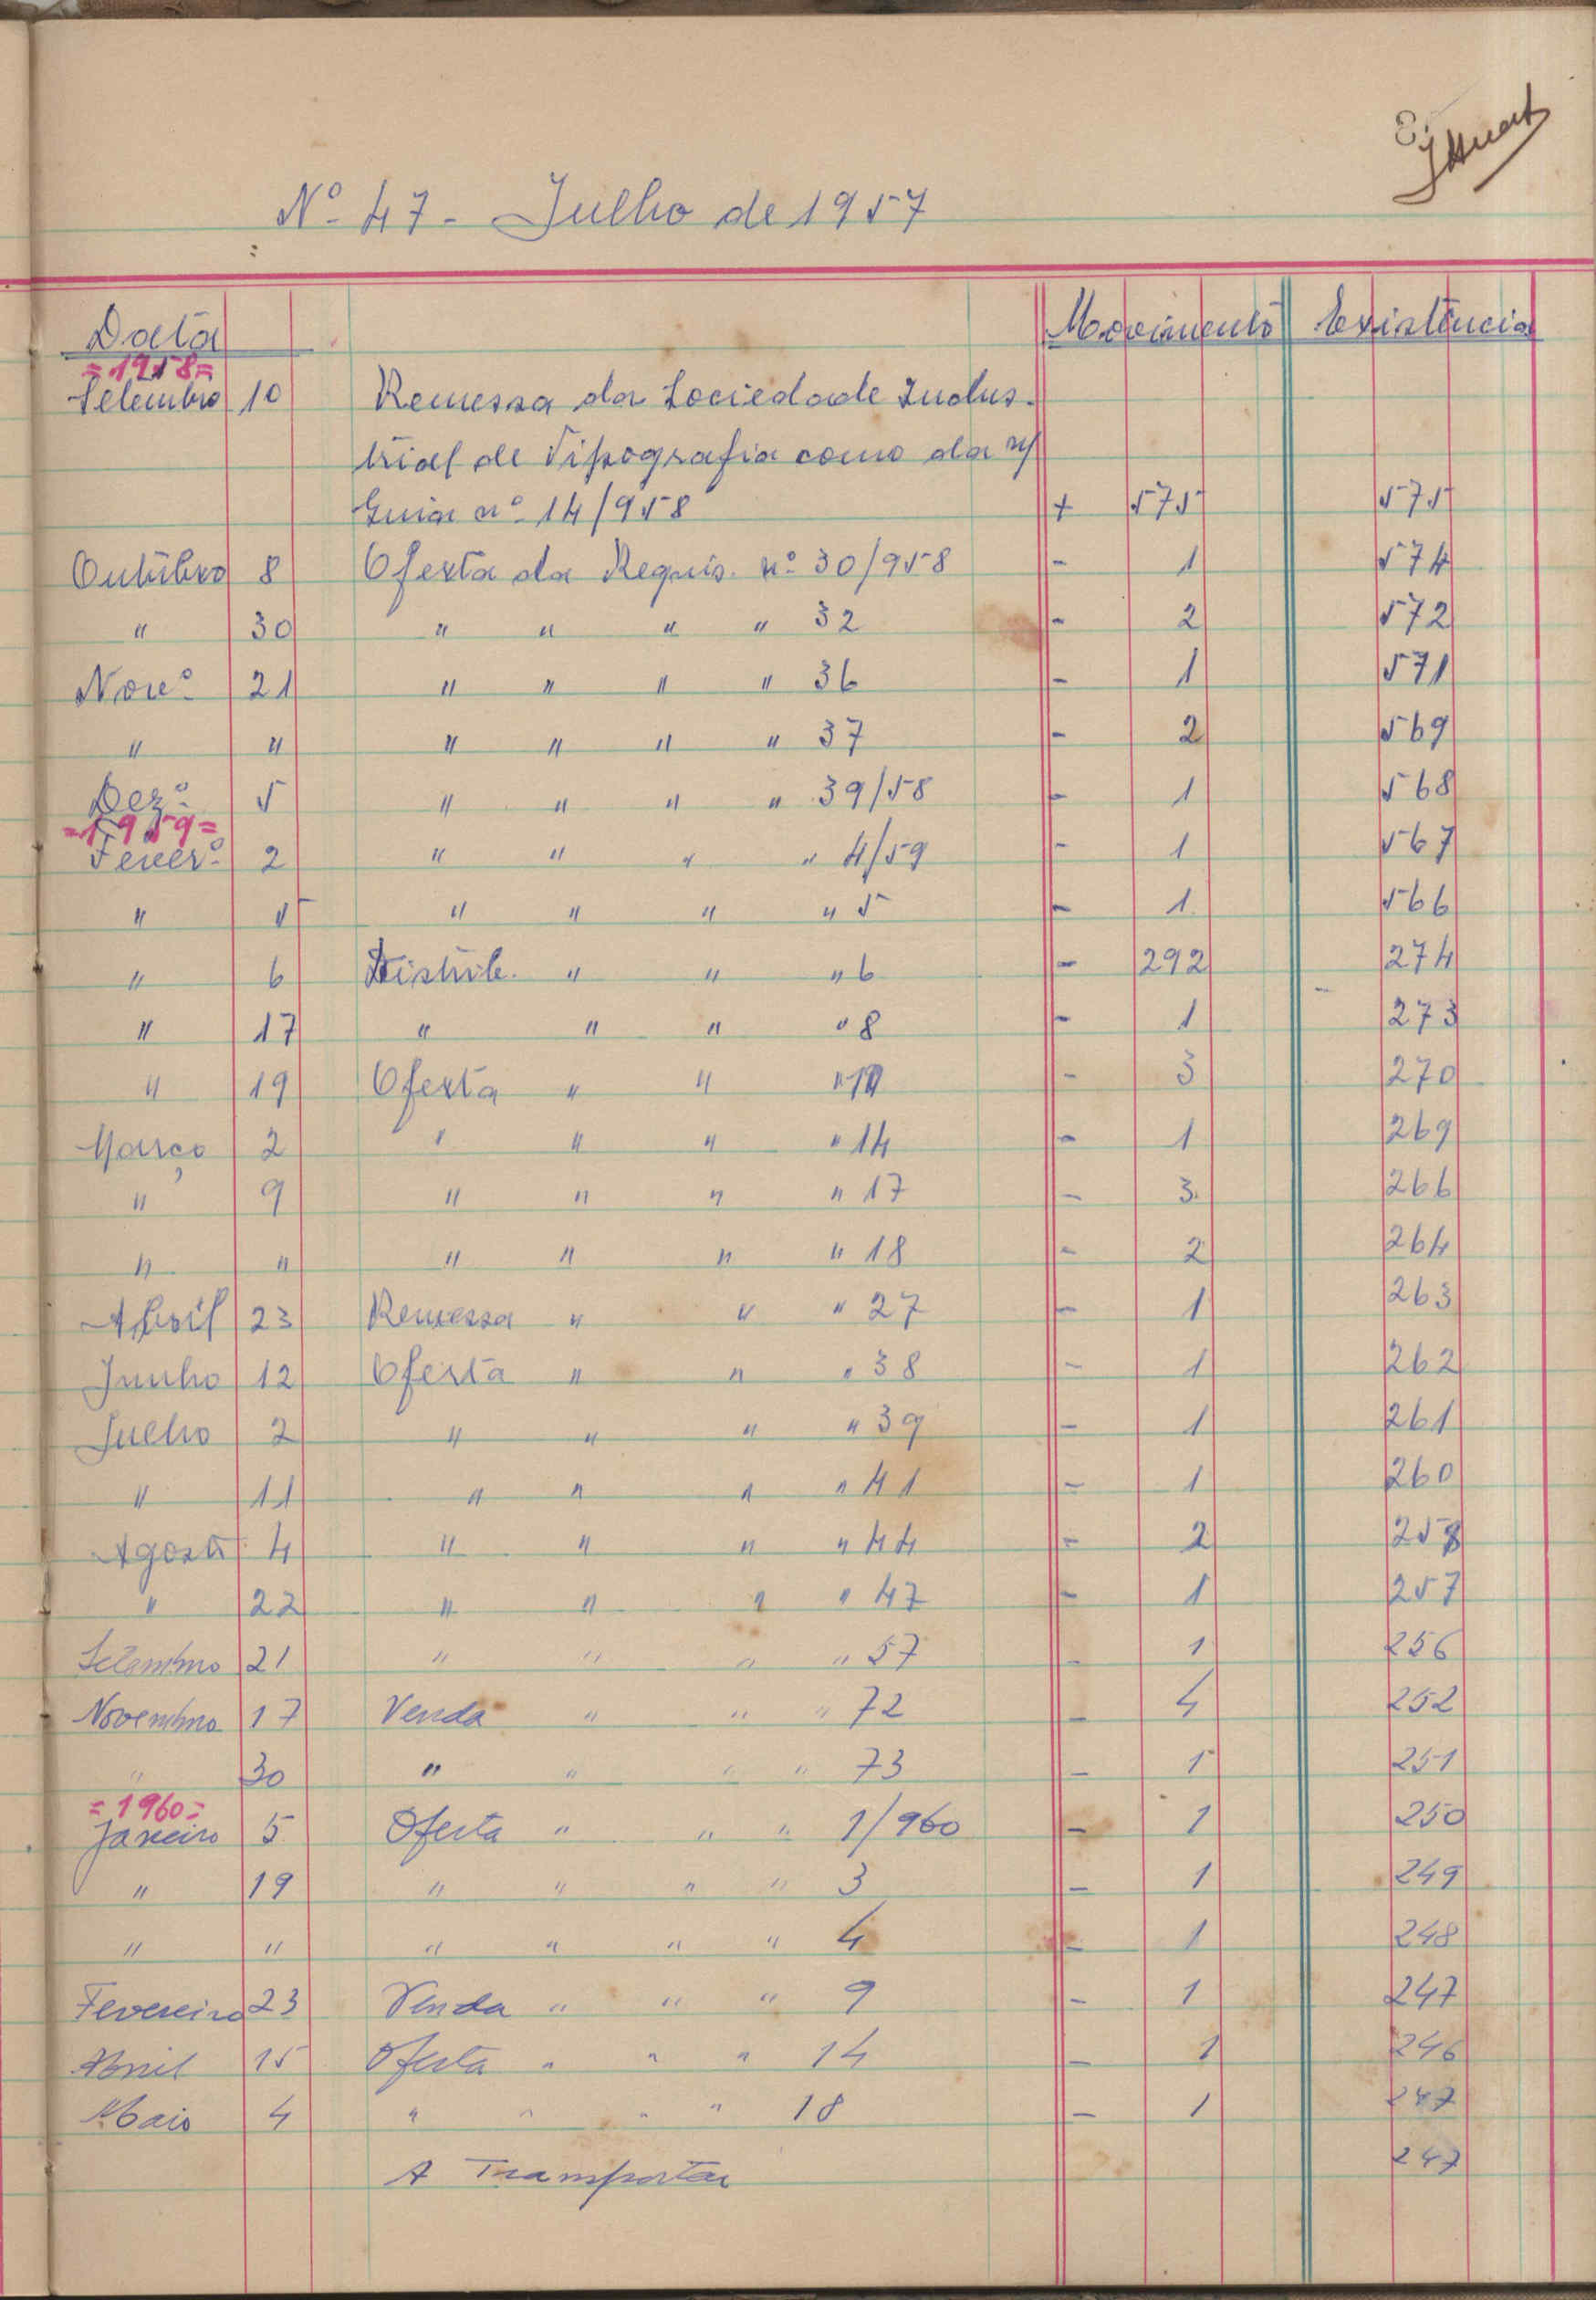 8
Nº 47 - Julho de 1957
Data Movimento Existência
=1958=
Setembro 10 Remessa da Sociedade Indus-
trial de Tipografia como da n/
Guia nº 14/958 + 575 575
Outubro 8 Oferta da Requis. nº 30/958 - 1 574
" 30 " " " " 32 - 2 572
Novº 21 " " " " 36 - 1 571
" " " " " " 37 - 2 569
Dezº 5 " " " " 39/58 - 1 568
=1959=
Feverº 2 " " " " 4/59 - 1 567
" 5 " " " " 5 - 1 566
" 6 Distrib. " " " 6 - 292 274
" 17 " " " " 8 - 1 273
" 19 Oferta " " " - 3 270
Março 2 " " " " 14 - 1 269
" 9 " " " " 17 - 3 266
" " " " " " 18 - 2 264
Abril 23 Remessa " " " 27 - 1 263
Junho 12 Oferta " " " 38 - 1 262
Julho 2 " " " " 39 - 1 261
" 11 " " " " 41 - 1 260
Agosto 4 " " " " 44 - 2 258
" 22 " " " " 47 - 1 257
Setembro 21 " " " " 57 - 1 256
Novembro 17 Venda " " " 72 - 4 252
" 30 " " " " 73 - 1 251
=1960=
Janeiro 5 Oferta " " " 1/960 - 1 250
" 19 " " " " 3 - 1 249
" " " " " " 4 - 1 248
Fevereiro 23 Venda " " " 9 - 1 247
Abril 15 Oferta " " " 14 - 1 246
Maio 4 " " " " 18 - 1 247
A Transportar 247